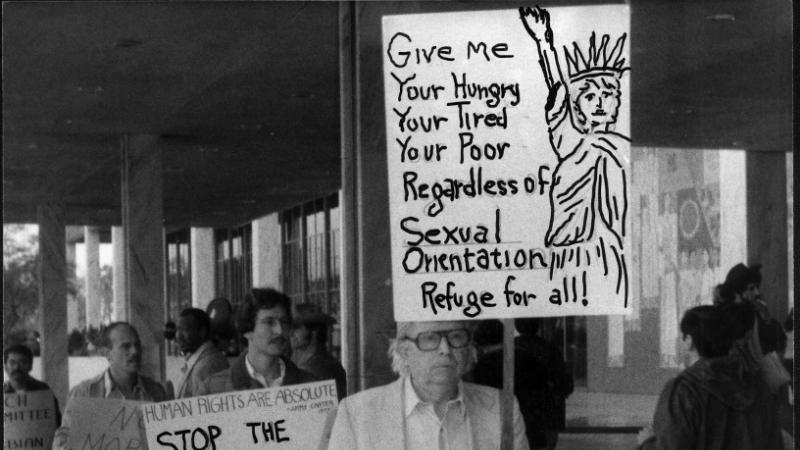 Give Me
Your Hungry
Your Tired
Your Poor
Regardless of
Sexual
Orientation
Refuge for all!
HUMAN RIGHTS ARE ABSOLUTE
JIMMY CARTER
STOP THE
CH
MITTEE
BIAN
NO
MOR